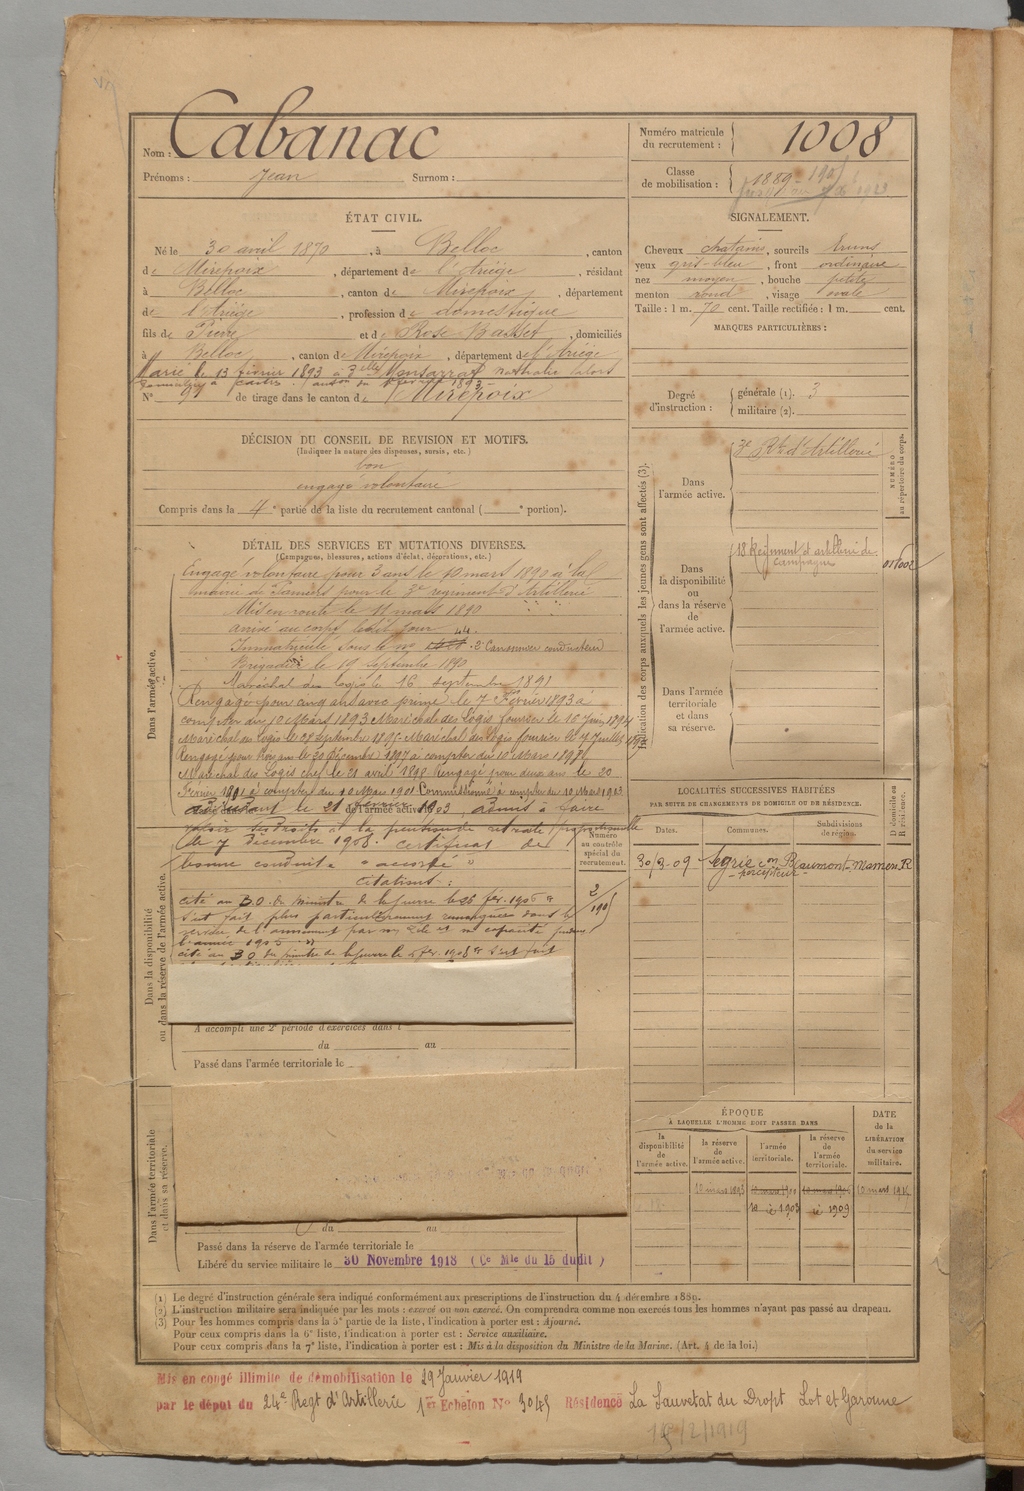 Nom : Cabanac
Prénoms : Jean Surnom :
Numéro matricule du recrutement : 1008
Classe de mobilisation : 1889
ÉTAT CIVIL.
Né le 30 avril 1870, à Belloc, canton
de Mirepoix, département de l'Ariége, résidant
à Belloc, canton de Mirepoix, département
de l'Ariége, profession de domestique
fils de Pierre et de Rose Basset, domiciliés
à Belloc, canton de Mirepoix, département de l'Ariége
Marié le 13 février 1893 à Melle Monsarrat Nathalie
N° 97 de tirage dans le canton de Mirepoix
SIGNALEMENT.
Cheveux chatains, sourcils bruns
yeux gris-bleu, front ordinaire
nez moyen, bouche petite
menton rond, visage ovale
Taille : 1 m. 70 cent. Taille rectifiée : 1 m. cent.
MARQUES PARTICULIÈRES :
Degré d'instruction : générale (1). 3
militaire (2).
DÉCISION DU CONSEIL DE REVISION ET MOTIFS.
(Indiquer la nature des dispenses, sursis, etc.)
bon
engagé volontaire
Compris dans la 4e partie de la liste du recrutement cantonal ( e portion).
DÉTAIL DES SERVICES ET MUTATIONS DIVERSES.
(Campagnes, blessures, actions d'éclat, décorations, etc.)
Dans l'armée active.
Engagé volontaire pour 3 ans le 10 mars 1890 à la
mairie de Pamiers pour le 3e régiment d'Artillerie
Mis en route le 11 mars 1890
arrivé au corps ledit jour
Immatriculé sous le no 44. 2e Canonnier conducteur
Brigadier le 19 septembre 1890
Maréchal des logis le 16 septembre 1891
Rengagé pour cinq ans avec prime le 7 Février 1893 à
compter du 10 Mars 1893 Maréchal des Logis fourrier le 16 Juin 1894
Maréchal des Logis le 28 Septembre 1895 Maréchal des Logis fourrier le 4 Juillet
Rengagé pour trois ans le 30 Décembre 1897 à compter du 10 Mars 1898
Maréchal des Logis chef le 21 avril 1898 Rengagé pour deux ans le 20
Février 1901 à compter du 10 Mars 1901 Commissionné à compter du 10 Mars 1903
Adjudant le 21 février 1903, admis à faire
valoir ses droits à la pension de retraite proportionnelle
le 7 décembre 1908. Certificat de
bonne conduite "accordé"
Citations :
cité au B.O. du ministre de la Guerre le 26 fév. 1906
s'est fait plus particulièrement remarquer dans le
service de l'armement par son zèle et sa capacité pendant
l'année 1905
cité au B O du ministre de la Guerre le fév. 1908 s'est fait
Dans la disponibilité ou dans la réserve de l'armée active.
A accompli une 2e période d'exercices dans l
du au
Passé dans l'armée territoriale le
Numéro au contrôle spécial du recrutement.
2/190
Dans l'armée territoriale et dans sa réserve.
du au
Passé dans la réserve de l'armée territoriale le
Libéré du service militaire le 30 Novembre 1918 (Ce Mle du 15 dudit)
Indication des corps auxquels les jeunes gens sont affectés (3).
Dans l'armée active.
3e Rt d'Artillerie
NUMÉRO au répertoire du corps.
Dans la disponibilité ou dans la réserve de l'armée active.
18 Régiment d'artillerie de campagne
Dans l'armée territoriale et dans sa réserve.
LOCALITÉS SUCCESSIVES HABITÉES
PAR SUITE DE CHANGEMENTS DE DOMICILE OU DE RÉSIDENCE.
Dates. Communes. Subdivisions de région. D domicile ou R résidence.
30/3-09 Ségrie en Beaumont Mamers R
percepteur
ÉPOQUE
À LAQUELLE L'HOMME DOIT PASSER DANS
la disponibilité de l'armée active. la réserve de l'armée active. l'armée territoriale. la réserve de l'armée territoriale. DATE de la LIBÉRATION du service militaire.
10 mars 1893 10 mars 1900 10 mars 1906
1903 1909
(1) Le degré d'instruction générale sera indiqué conformément aux prescriptions de l'instruction du 4 décembre 1889.
(2) L'instruction militaire sera indiquée par les mots : exercé ou non exercé. On comprendra comme non exercés tous les hommes n'ayant pas passé au drapeau.
(3) Pour les hommes compris dans la 5e partie de la liste, l'indication à porter est : Ajourné.
Pour ceux compris dans la 6e liste, l'indication à porter est : Service auxiliaire.
Pour ceux compris dans la 7e liste, l'indication à porter est : Mis à la disposition du Ministre de la Marine. (Art. 4 de la loi.)
Mis en congé illimité de démobilisation le 29 Janvier 1919
par le dépôt du 24e Regt d'Artillerie 1er Echelon No 3045 Résidence La Sauvetat du Dropt Lot et Garonne
/2/1919